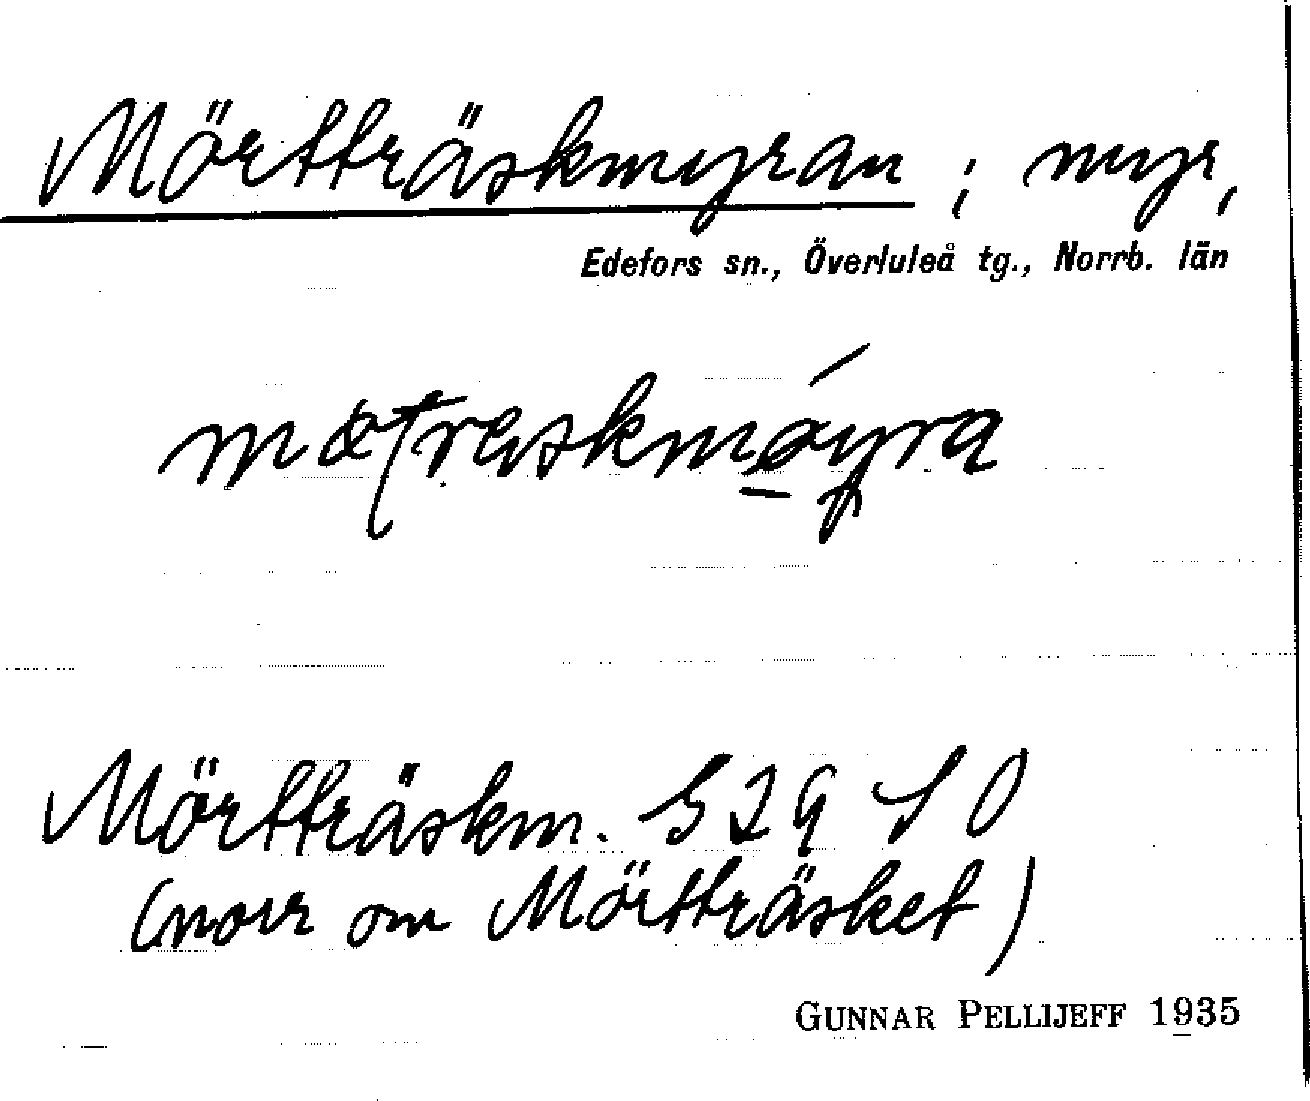 Mörtträskmyran ; myr,
Edefors sn., Överluleå tg., Norrb. län
Mörtträskm. S29 10
(norr om Mörtträsket)
GUNNAR PELLIJEFF 1935